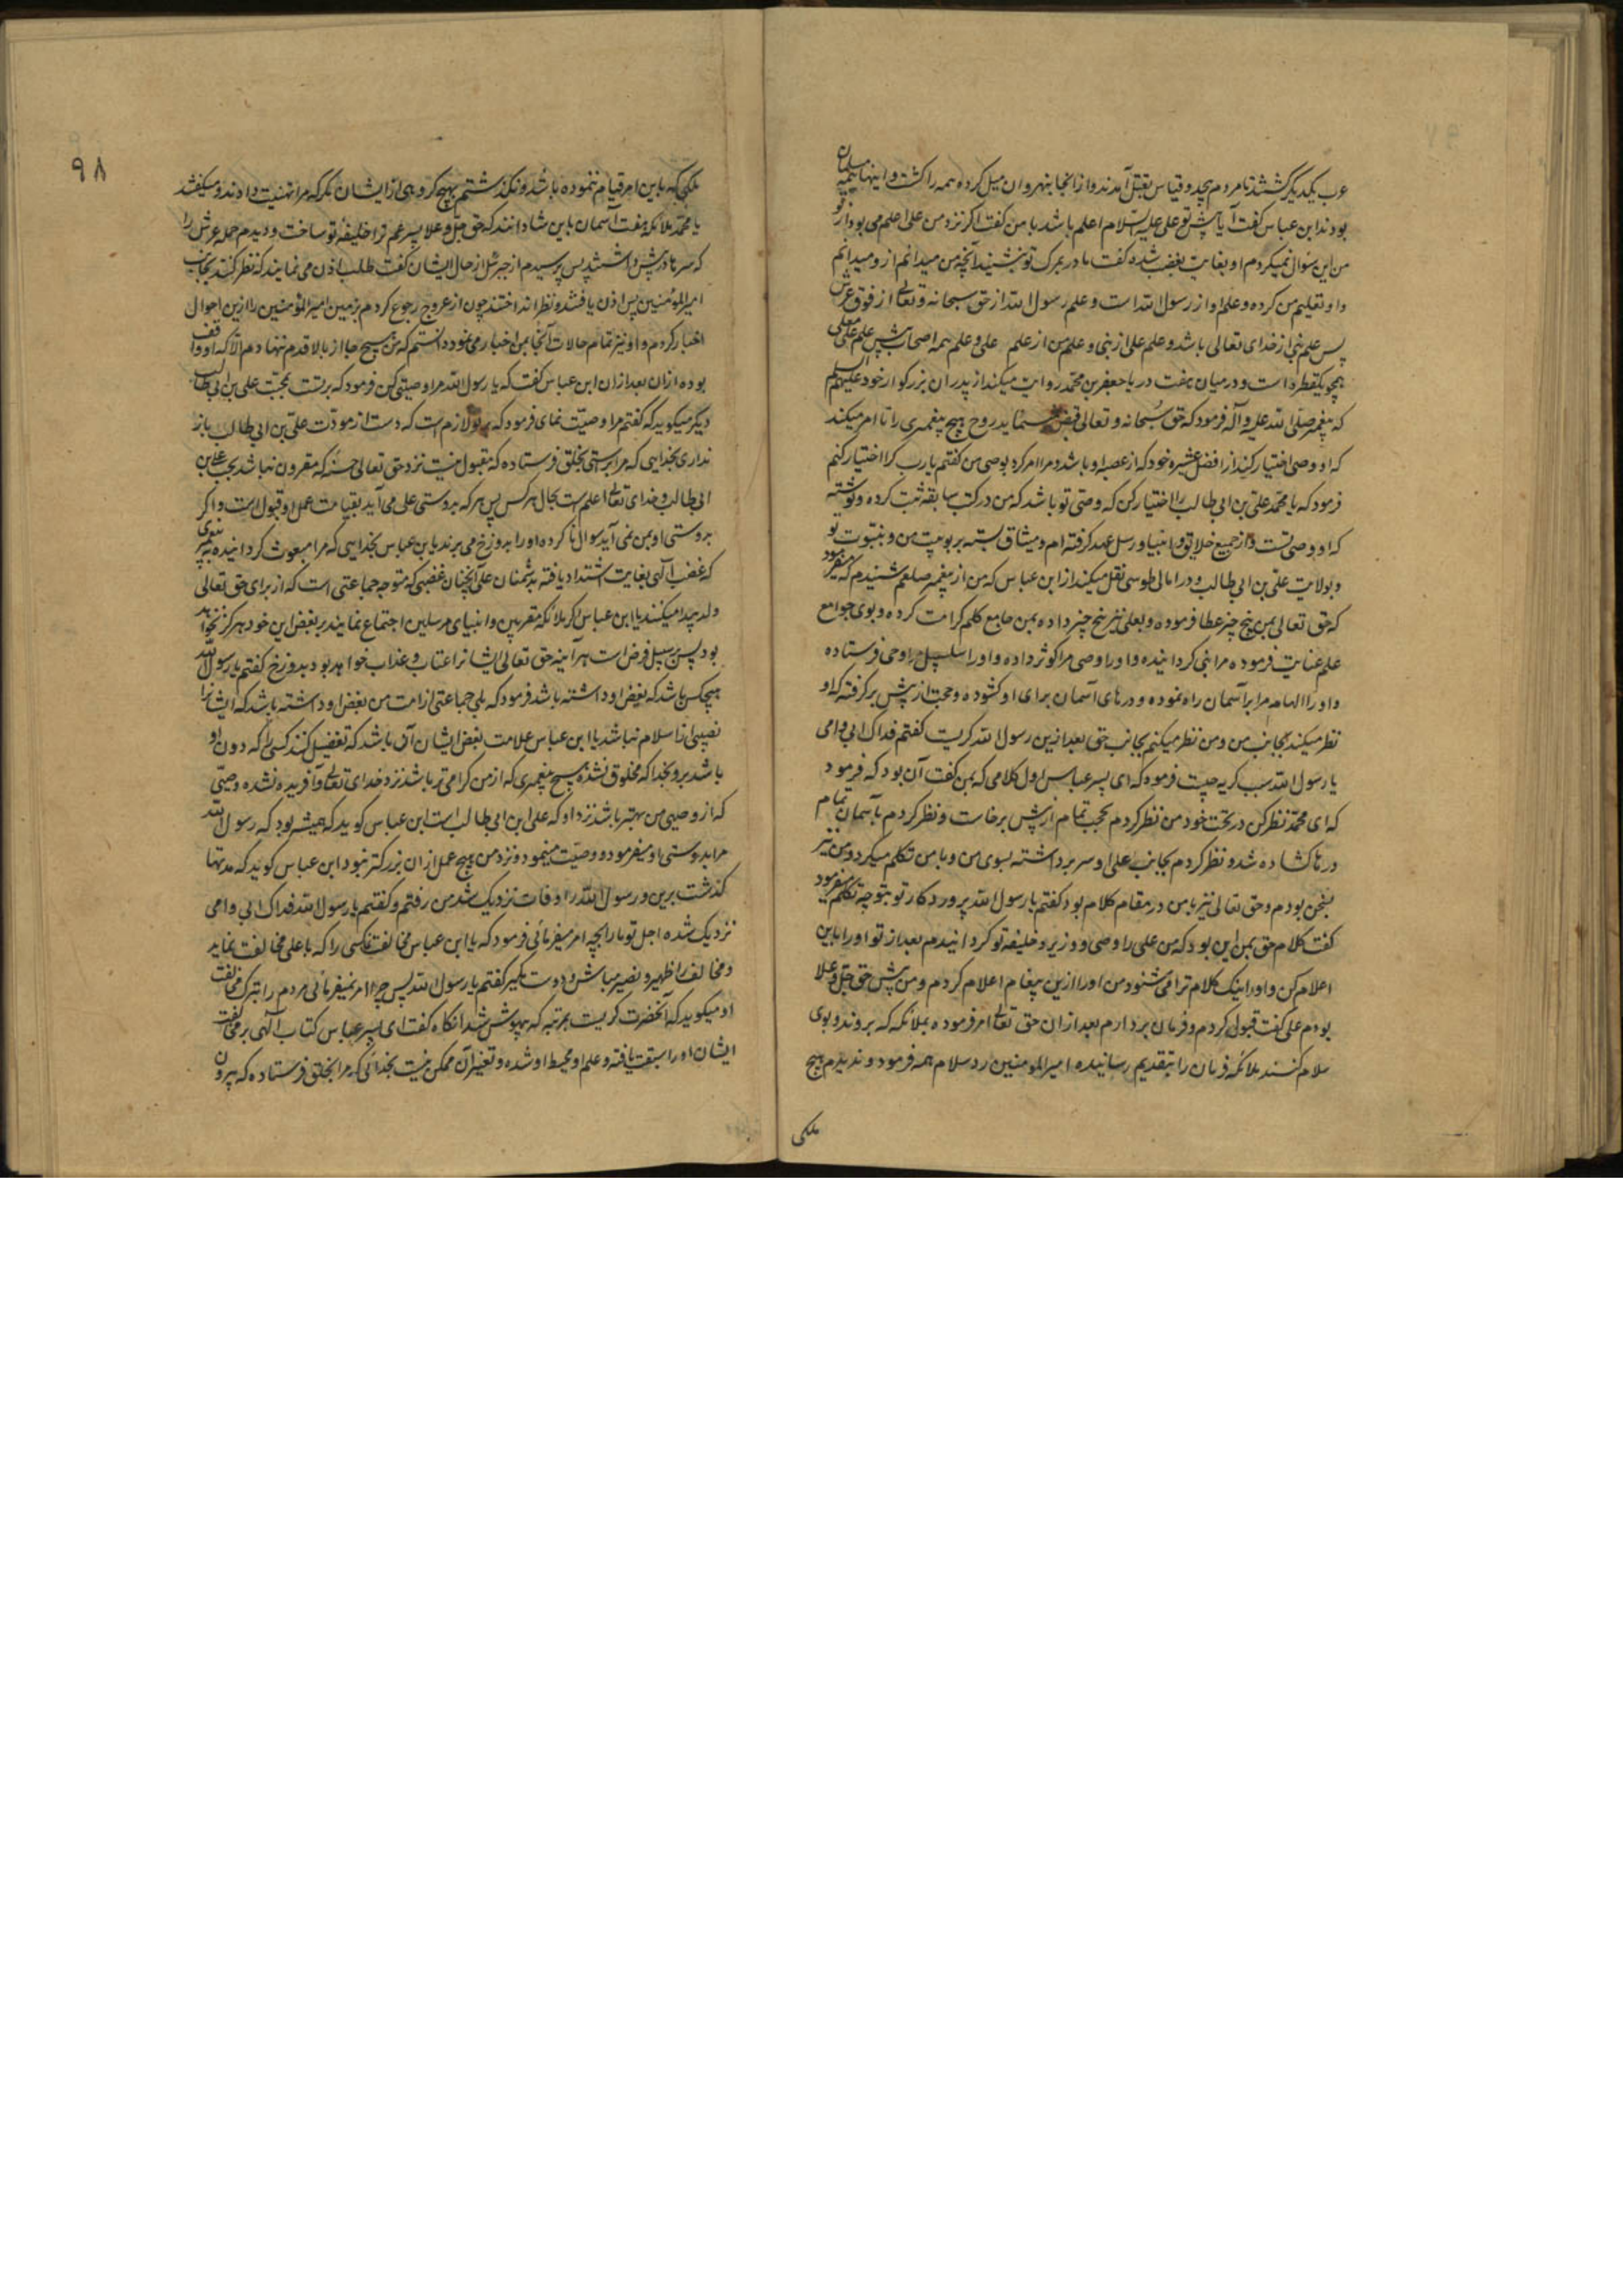 عرب یکدیگر کشتند تا مردم بیحد و قیاس بقتل آمدند و از آنجا بنهروان میل کرده همه را کشت و اینها همه مسلمان
بودند ابن عباس گفت آیا پیش تو علی علیه السلام اعلم باشد یا من گفت اگر نزد من علی اعلم می بود از تو
من این سوال نمیکردم او بغایت بغضب شده گفت مادر بمرگ تو نشیند آنچه من میدانم از و میدانم
و او تعلیم من کرده و علم او از رسول الله است و علم رسول الله از حق سبحانه و تعالی از فوق عرش
پس علم نبی از خدای تعالی باشد و علم علی از نبی و علم من از علم علی و علم همه اصحاب پیش علم علی
همچو یکقطره است و در میان هفت دریا جعفر بن محمد روایت میکند از پدران بزرگوار خود علیهم السلم
که پیغمبر صلی الله علیه و آله فرمود که حق سبحانه و تعالی قبض نمی نماید روح هیچ پیغمبری را تا امر میکند
که او وصی اختیار کند از افضل عشیره خود که از عصبه او باشد و مرا امر کرد بوصی من گفتم یا رب کرا اختیار کنم
فرمود که یا محمد علی بن ابی طالب را اختیار کن که وصی تو باشد که من در کتب سابقه ثبت کرده و نوشته
که او وصی تست و از جمیع خلایق و انبیا و رسل عهد گرفته ام و میثاق بسته بربوبیت من و بنبوت تو
و بولایت علی بن ابی طالب و در امالی طوسی نقل میکند از ابن عباس که من از پیغمبر صلعم شنیدم که میفرمود
که حق تعالی بمن پنج چیز عطا فرموده و بعلی نیز پنج چیز داده بمن جامع کلم کرامت کرده و بوی جوامع
علم عنایت فرموده مرا نبی گردانیده و او را وصی مرا کوثر داده و او را سلسبیل مرا وحی فرستاده
و او را الهام مرا بر آسمان راه نموده و درهای آسمان برای او گشوده و حجب از پیش برگرفته که او
نظر میکند بجانب من و من نظر میکنم بجانب حق بعد ازین رسول الله گریست گفتم فداک ابی و امی
یا رسول الله سبب گریه چیست فرمود که ای پسر عباس اول کلامی که بمن گفت آن بود که فرمود
که ای محمد نظر کن در تحت خود من نظر کردم حجب تمام از پیش برخاست و نظر کردم بآسمان تمام
درها گشاده شد و نظر کردم بجانب علی او سر برداشته بسوی من و با من تکلم میکرد و من نیز
بسخن بودم و حق تعالی نیز با من در مقام کلام بود گفتم یا رسول الله پروردگار تو بتو چه تکلم میفرمود
گفت کلام حق بمن این بود که من علی را وصی و وزیر و خلیفه تو گردانیدم بعد از تو او را باین
اعلام کن و او اینک کلام ترا می شنود من او را ازین پیغام اعلام کردم و من پیش حق جل و علا
بودم علی گفت قبول کردم و فرمان بردارم بعد از ان حق تعالی امر فرموده بملائکه که بروند و بوی
سلام کنند ملائکه فرمان را بتقدیم رسانیده امیر المومنین رد سلام همه فرمود و ندیدم هیچ
ملکی
۹۸
ملکی که باین امر قیام ننموده باشد و نگذشتم بهیچ گروهی از ایشان مگر که مرا تهنیت دادند و میگفتند
یا محمد ملائکه هفت آسمان باین شادانند که حق جل و علا پسر عم ترا خلیفه تو ساخت و دیدم حمله عرش را
که سرها در پیش داشتند پس پرسیدم از جبرئیل از حال ایشان گفت طلب اذن می نمایند که نظر کنند بجانب
امیر المؤمنین پس اذن یافتند و نظر انداختند چون از عروج رجوع کردم بزمین امیر المؤمنین را ازین احوال
اخبار کردم و او نیز تمام حالات آنجا بمن اخبار می نمود دانستم که من هیچ جا از بالا قدم ننهادم الا که او واقف
بوده از ان بعد از ان ابن عباس گفت که یا رسول الله مرا وصیتی کن فرمود که بر تست بمحبت علی بن ابی طالب
دیگر میگوید که گفتم مرا وصیت نمای فرمود که بر تو لازم است که دست از مودت علی بن ابی طالب باز
نداری بخدایی که مرا براستی بخلق فرستاده که مقبول نیست نزد حق تعالی حسنه که مقرون نباشد بحب علی بن
ابی طالب و خدای تعالی اعلم است بحال هر کس پس هر که بدوستی علی می آید بقیامت عمل او قبول است و اگر
بدوستی او بمن نمی آید سوال ناکرده او را بدوزخ می برند یا بن عباس بخدایی که مرا مبعوث گردانیده به پیغمبری
که غضب الهی بغایت اشتداد یافته بدشمنان علی آنچنان غضبی که متوجه جماعتی است که از برای حق تعالی
ولد پیدا میکنند یا ابن عباس اگر ملائکه مقربین و انبیای مرسلین اجتماع نمایند بر بغض این خود هرگز نخواهد
بود پس بر سبیل فرض است هر آینه حق تعالی ایشانرا عتاب و عذاب خواهد بود بدوزخ گفتم یا رسول الله
هیچکس باشد که بغض او داشته باشد فرمود که بلی جماعتی از امت من بغض او داشته باشد که ایشانرا
نصیبی از اسلام نباشد یا ابن عباس علامت بغض ایشان آن باشد که تفضیل کنند کسی را که دون او
باشد برو بخدا که مخلوق نشده هیچ پیغمبری که از من گرامی تر باشد نزد خدای تعالی و آفریده نشده وصیی
که از وصی من بهتر باشد نزد او که علی ابن ابی طالب است ابن عباس گوید که همیشه بود که رسول الله
مرا بدوستی او میفرمود و وصیت مینمود و نزد من هیچ عمل از ان بزرگتر نبود ابن عباس گوید که مدتها
گذشت برین و رسول الله را وفات نزدیک شد من رفتم و گفتم یا رسول الله فداک ابی و امی
نزدیک شده اجل تو ما را بچه امر میفرمائی فرمود که یا ابن عباس مخالفت کن کسی را که با علی مخالفت نماید
و مخالف را ظهیر و نصیر مباش و دوست مگیر گفتم یا رسول الله پس چرا امر نمیفرمائی مردم را بترک مخالفت
او میگوید که آنحضرت گریست بمرتبه که بیهوش شد آنگاه گفت ای پسر عباس کتاب الهی بر مخالفت
ایشان او را سبقت یافته و علم او محیط او شده و تغیر آن ممکن نیست بخدائی که مرا بخلق فرستاده که بیرون